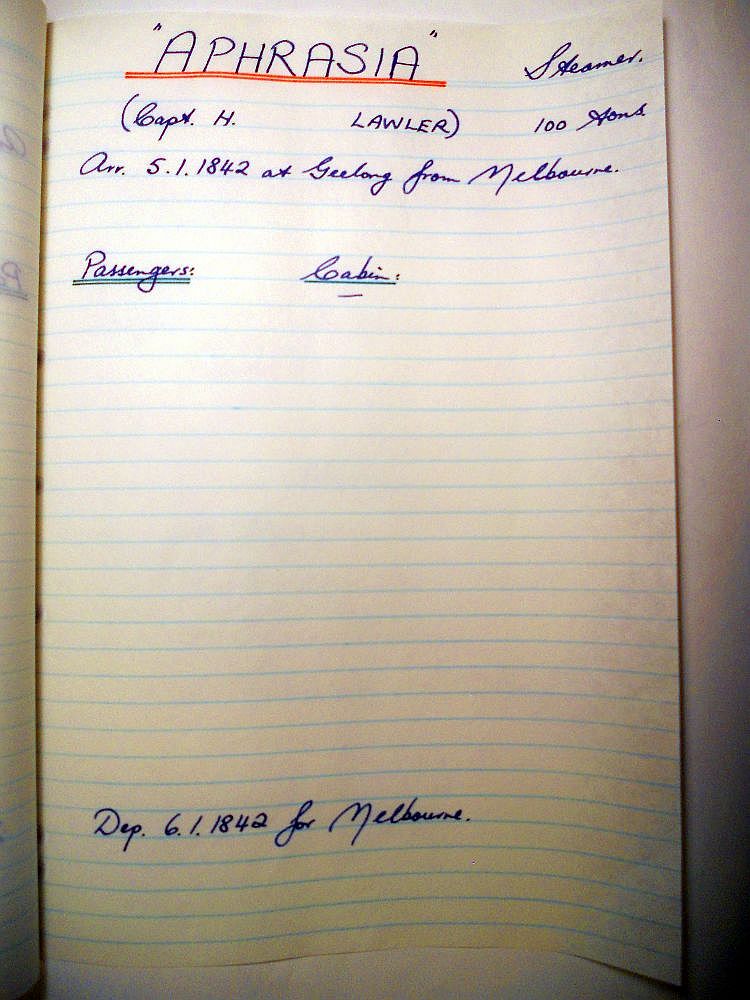 "APHRASIA" Steamer.
(Capt. H. LAWLER) 100 tons
Arr. 5.1.1842 at Geelong from Melbourne.
Passengers: Cabin:
—
Dep. 6.1.1842 for Melbourne.